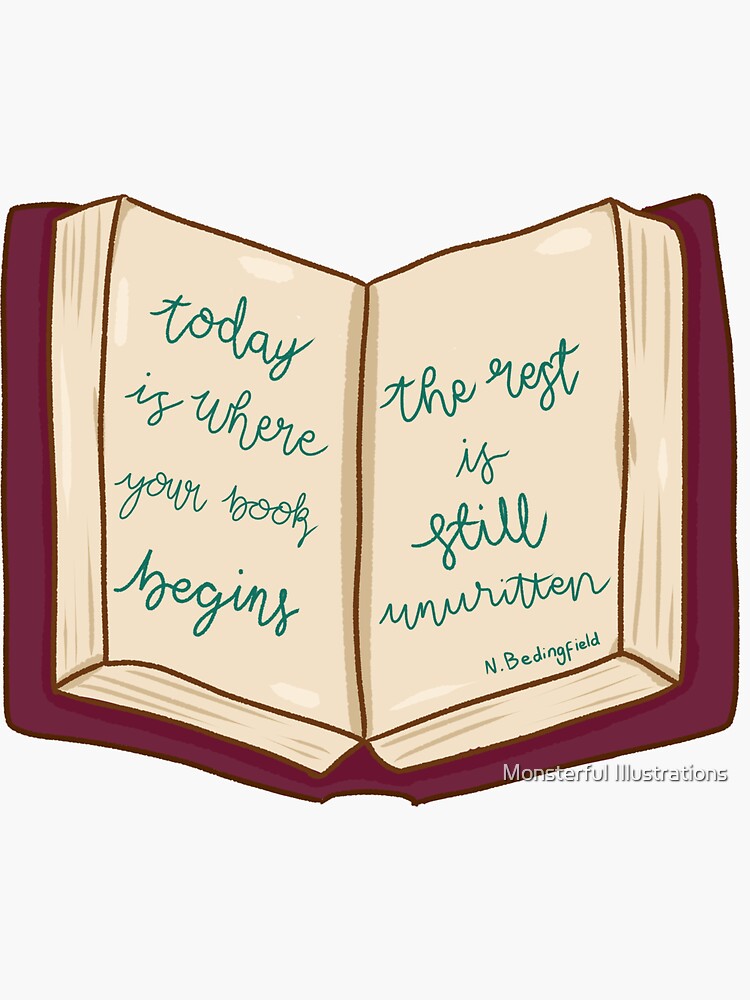 today
is where
your book
begins
the rest
is
still
unwritten
N. Bedingfield
Monsterful Illustrations